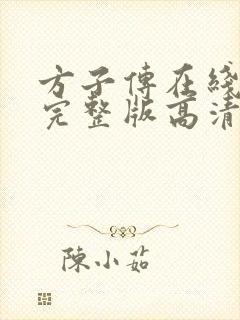 方子傳在綫
完整版高清
陳小茹